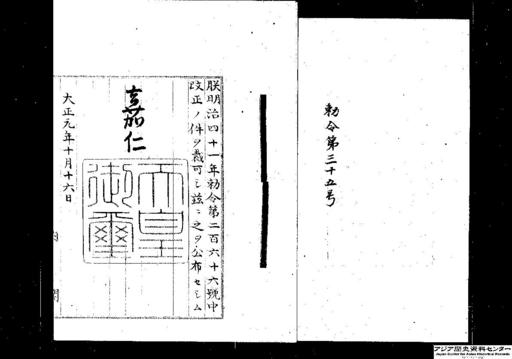 勅令第三十五号
朕明治四十一年勅令第二百六十六號中
改正ノ件ヲ裁可シ茲ニ之ヲ公布セシム
嘉仁
天皇
御璽
大正元年十月十六日
アジア歴史資料センター
Japan Center for Asian Historical Records